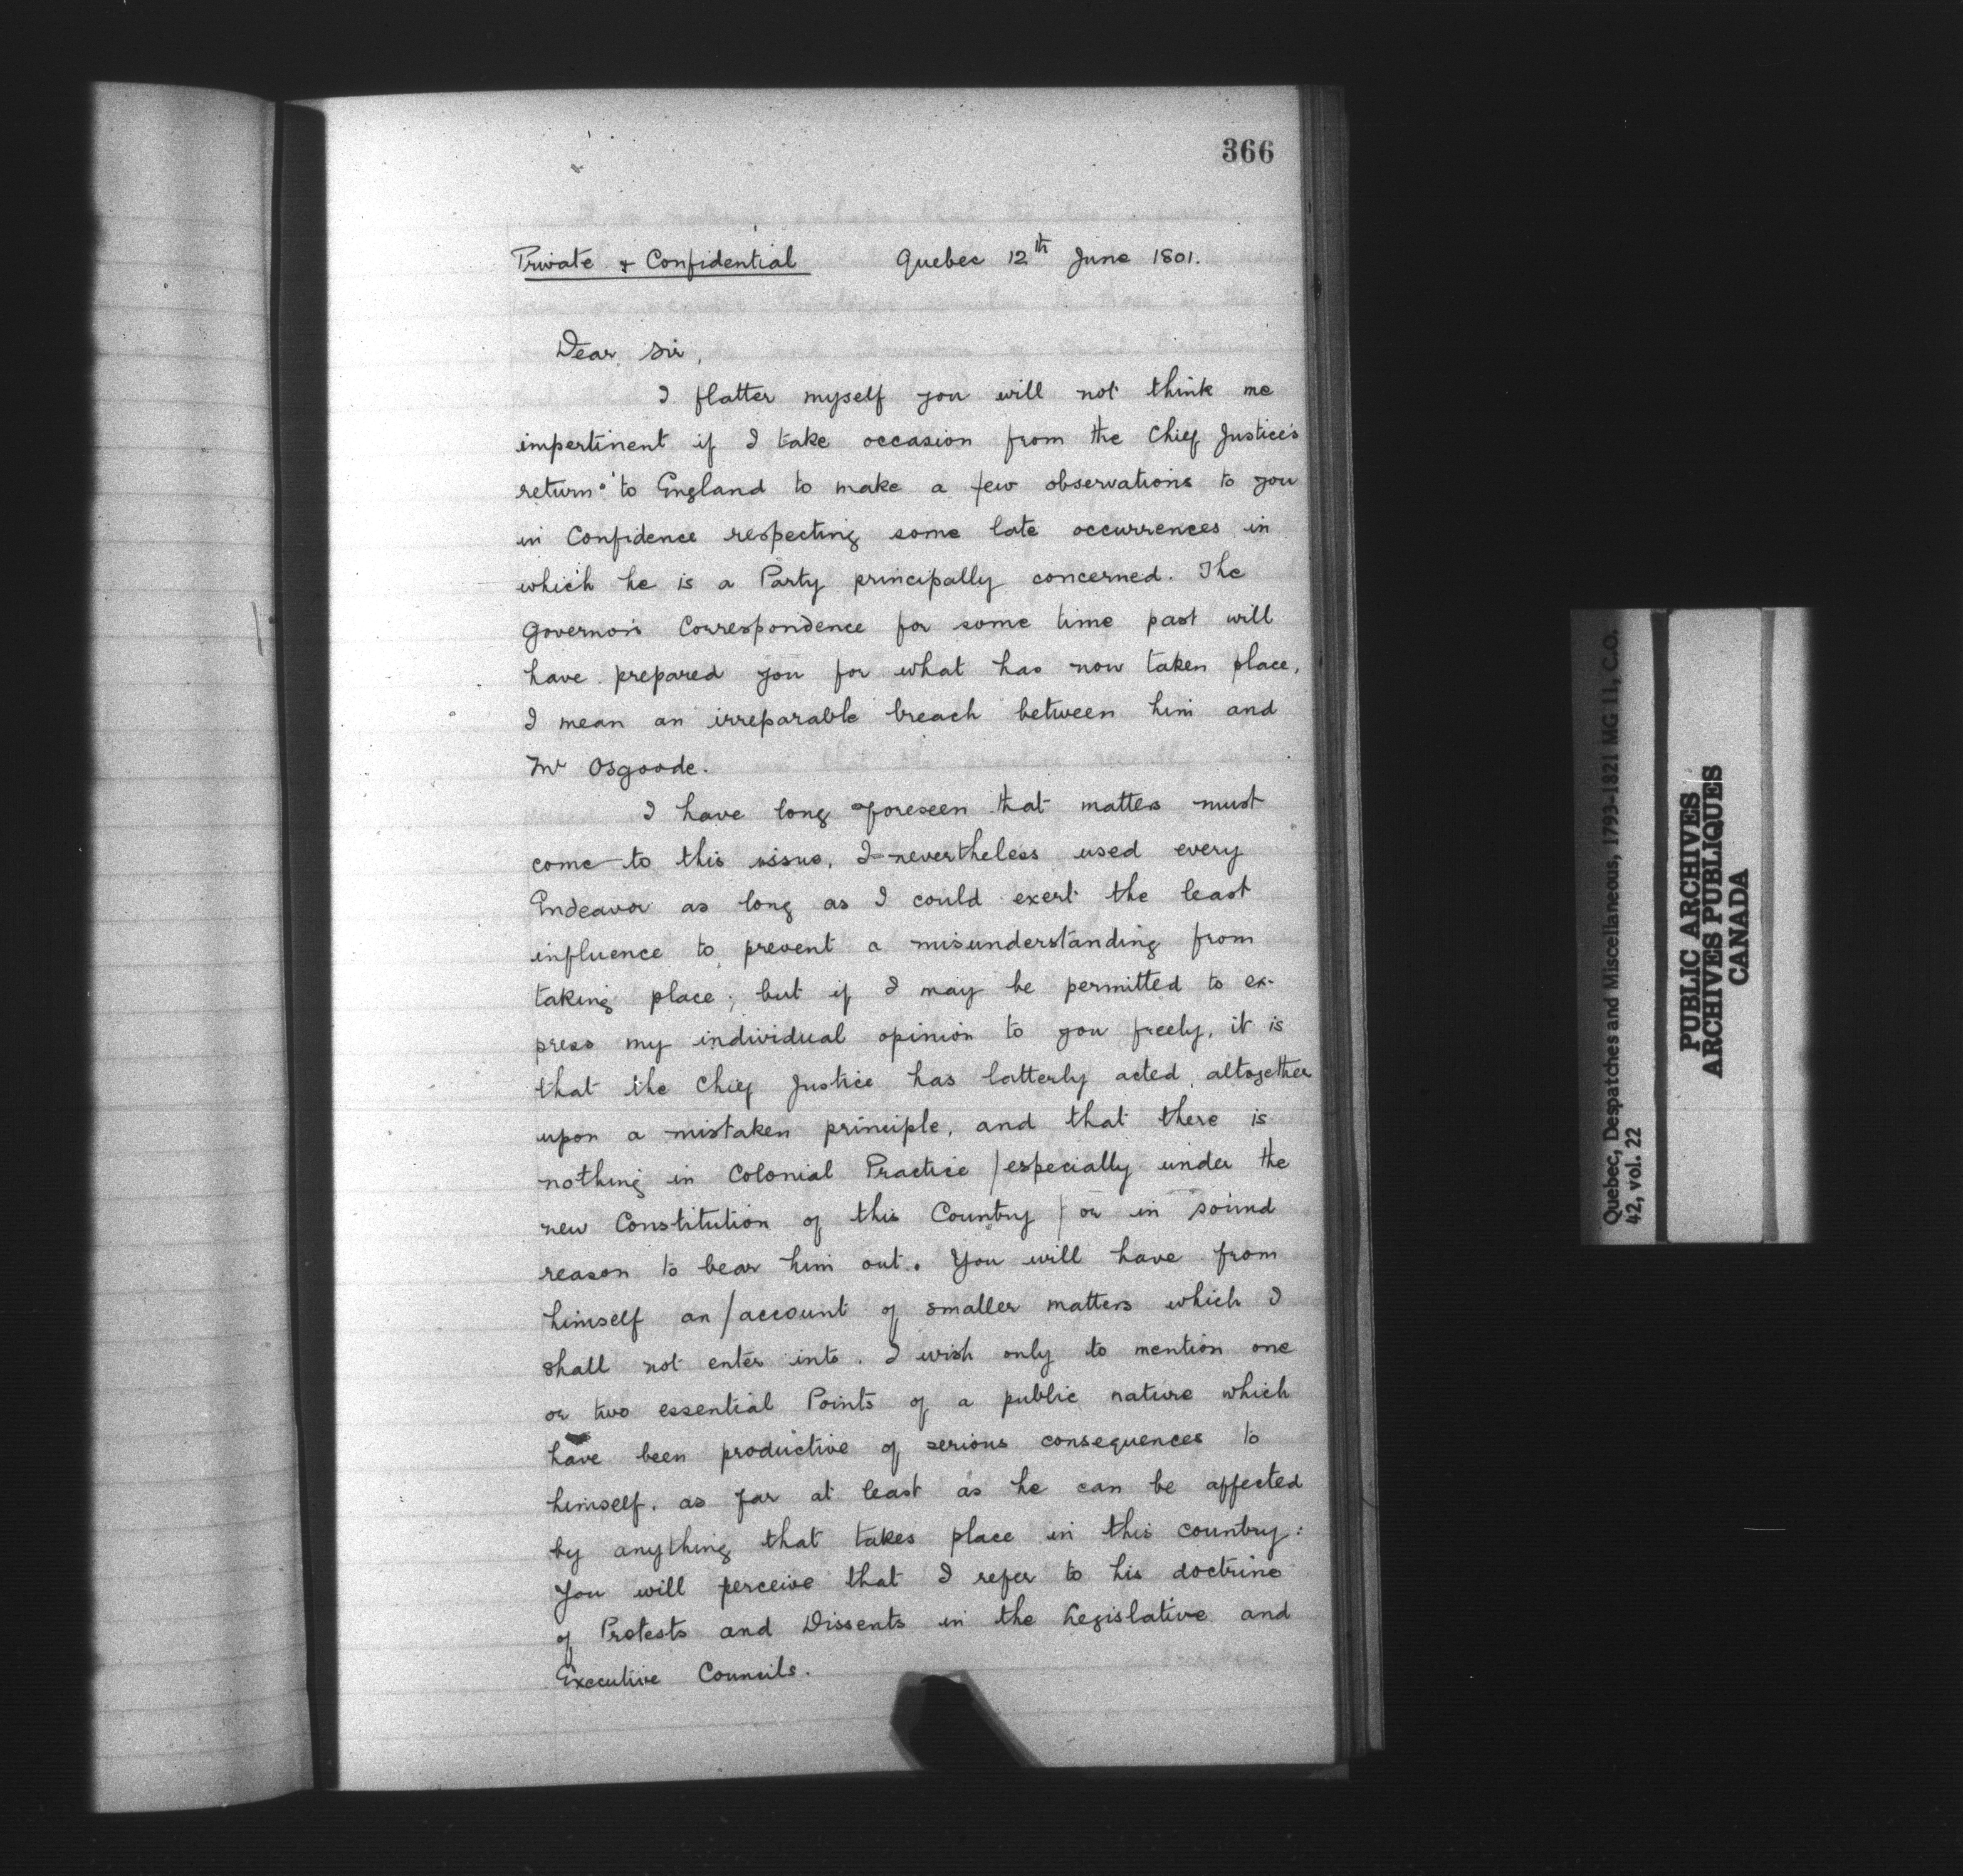 366
Private & Confidential Quebec 12th June 1801.
Dear Sir,
I flatter myself you will not think me
impertinent if I take occasion from the Chief Justice's
return to England to make a few observations to you
in Confidence respecting some late occurrences in
which he is a Party principally concerned. The
Governor's Correspondence for some time past will
have prepared you for what has now taken place,
I mean an irreparable breach between him and
Mr Osgoode.
I have long foreseen that matters must
come to this issue, I nevertheless used every
Endeavor as long as I could exert the least
influence to prevent a misunderstanding from
taking place; but if I may be permitted to ex-
press my individual opinion to you freely, it is
that the Chief Justice has latterly acted altogether
upon a mistaken principle, and that there is
nothing in Colonial Practice /especially under the
new Constitution of this Country / or in sound
reason to bear him out. You will have from
himself an /account of smaller matters which I
shall not enter into. I wish only to mention one
or two essential Points of a public nature which
have been productive of serious consequences to
himself, as far at least as he can be affected
by anything that takes place in this country:
You will perceive that I refer to his doctrine
of Protests and Dissents in the Legislative and
Executive Councils.
Quebec, Despatches and Miscellaneous, 1793-1821 MG 11, C.O.
42, vol. 22
PUBLIC ARCHIVES
ARCHIVES PUBLIQUES
CANADA